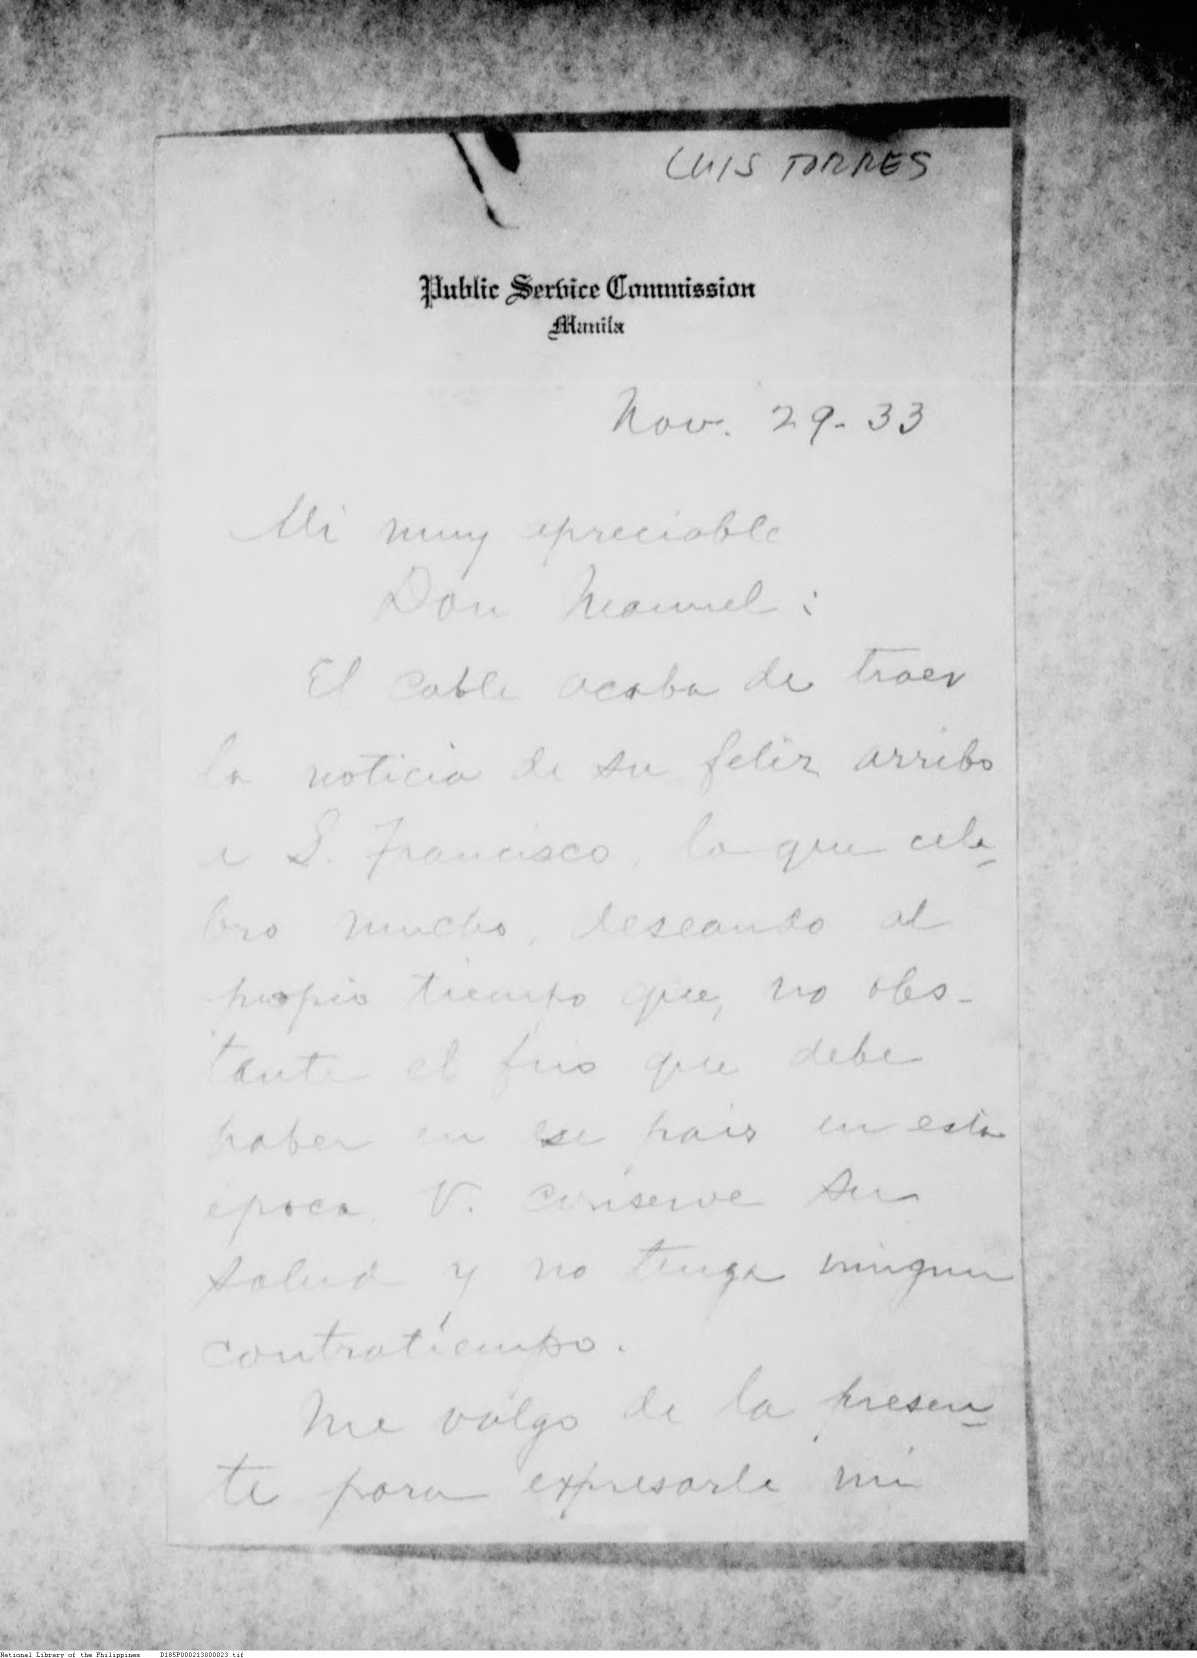 LUIS TORRES
Public Service Commission
Manila
Nov. 29-33
Mi muy apreciable
Don Manuel:
El cable acaba de traer
la noticia de su feliz arribo
a S. Francisco, lo que cele-
bro mucho, deseando al
propio tiempo que, no obs-
tante el frio que debe
haber en ese pais en esta
epoca V. conserve su
salud y no tenga ningun
contratiempo.
Me valgo de la presen-
te para expresarle mi
National Library of the Philippines D185P000213800023.tif